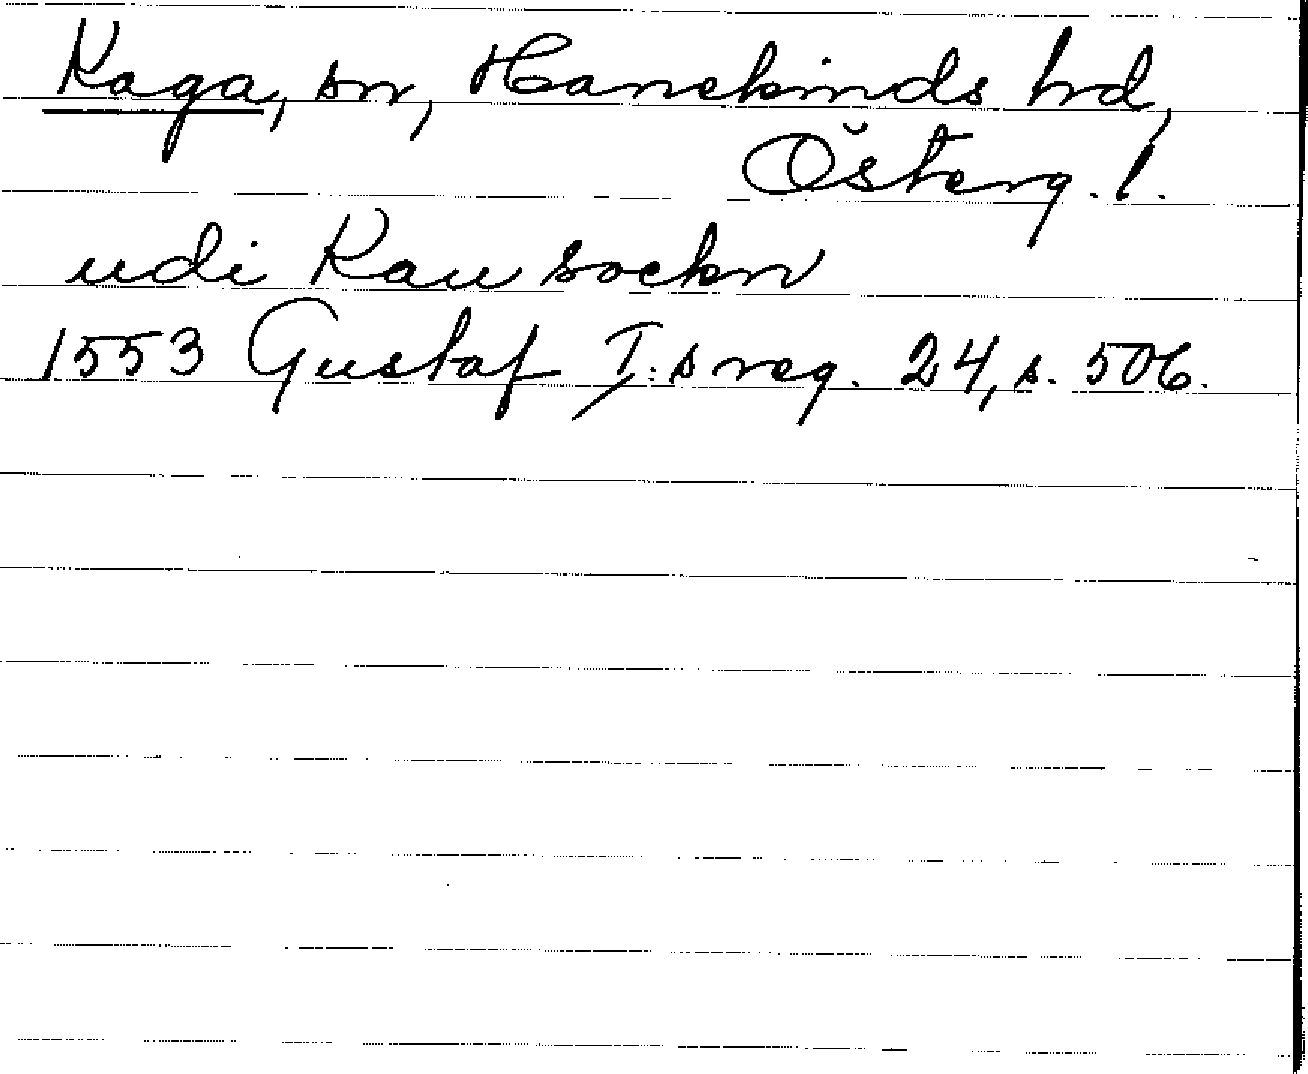 Kaga, sn, Hanekinds hrd,
Österg. l.
udi Kau sockn
1553 Gustaf I:s reg. 24, s. 506.